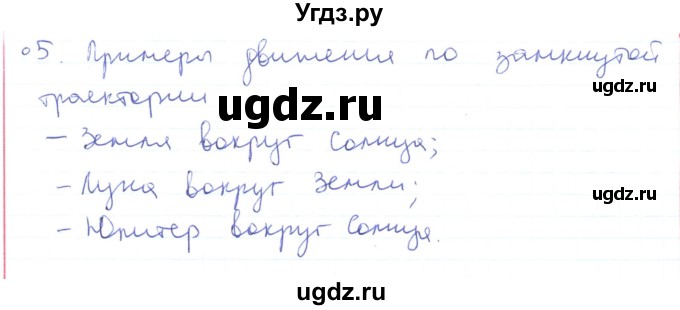 Угдз.ру
°5. Примеры движения по замкнутой
ugdz.ru
траектории
ugdz.ru
ugdz.ru
– Земля вокруг Солнца;
– Луна вокруг Земли;
ugdz.ru
– Юпитер вокруг Солнца.
ugdz.ru